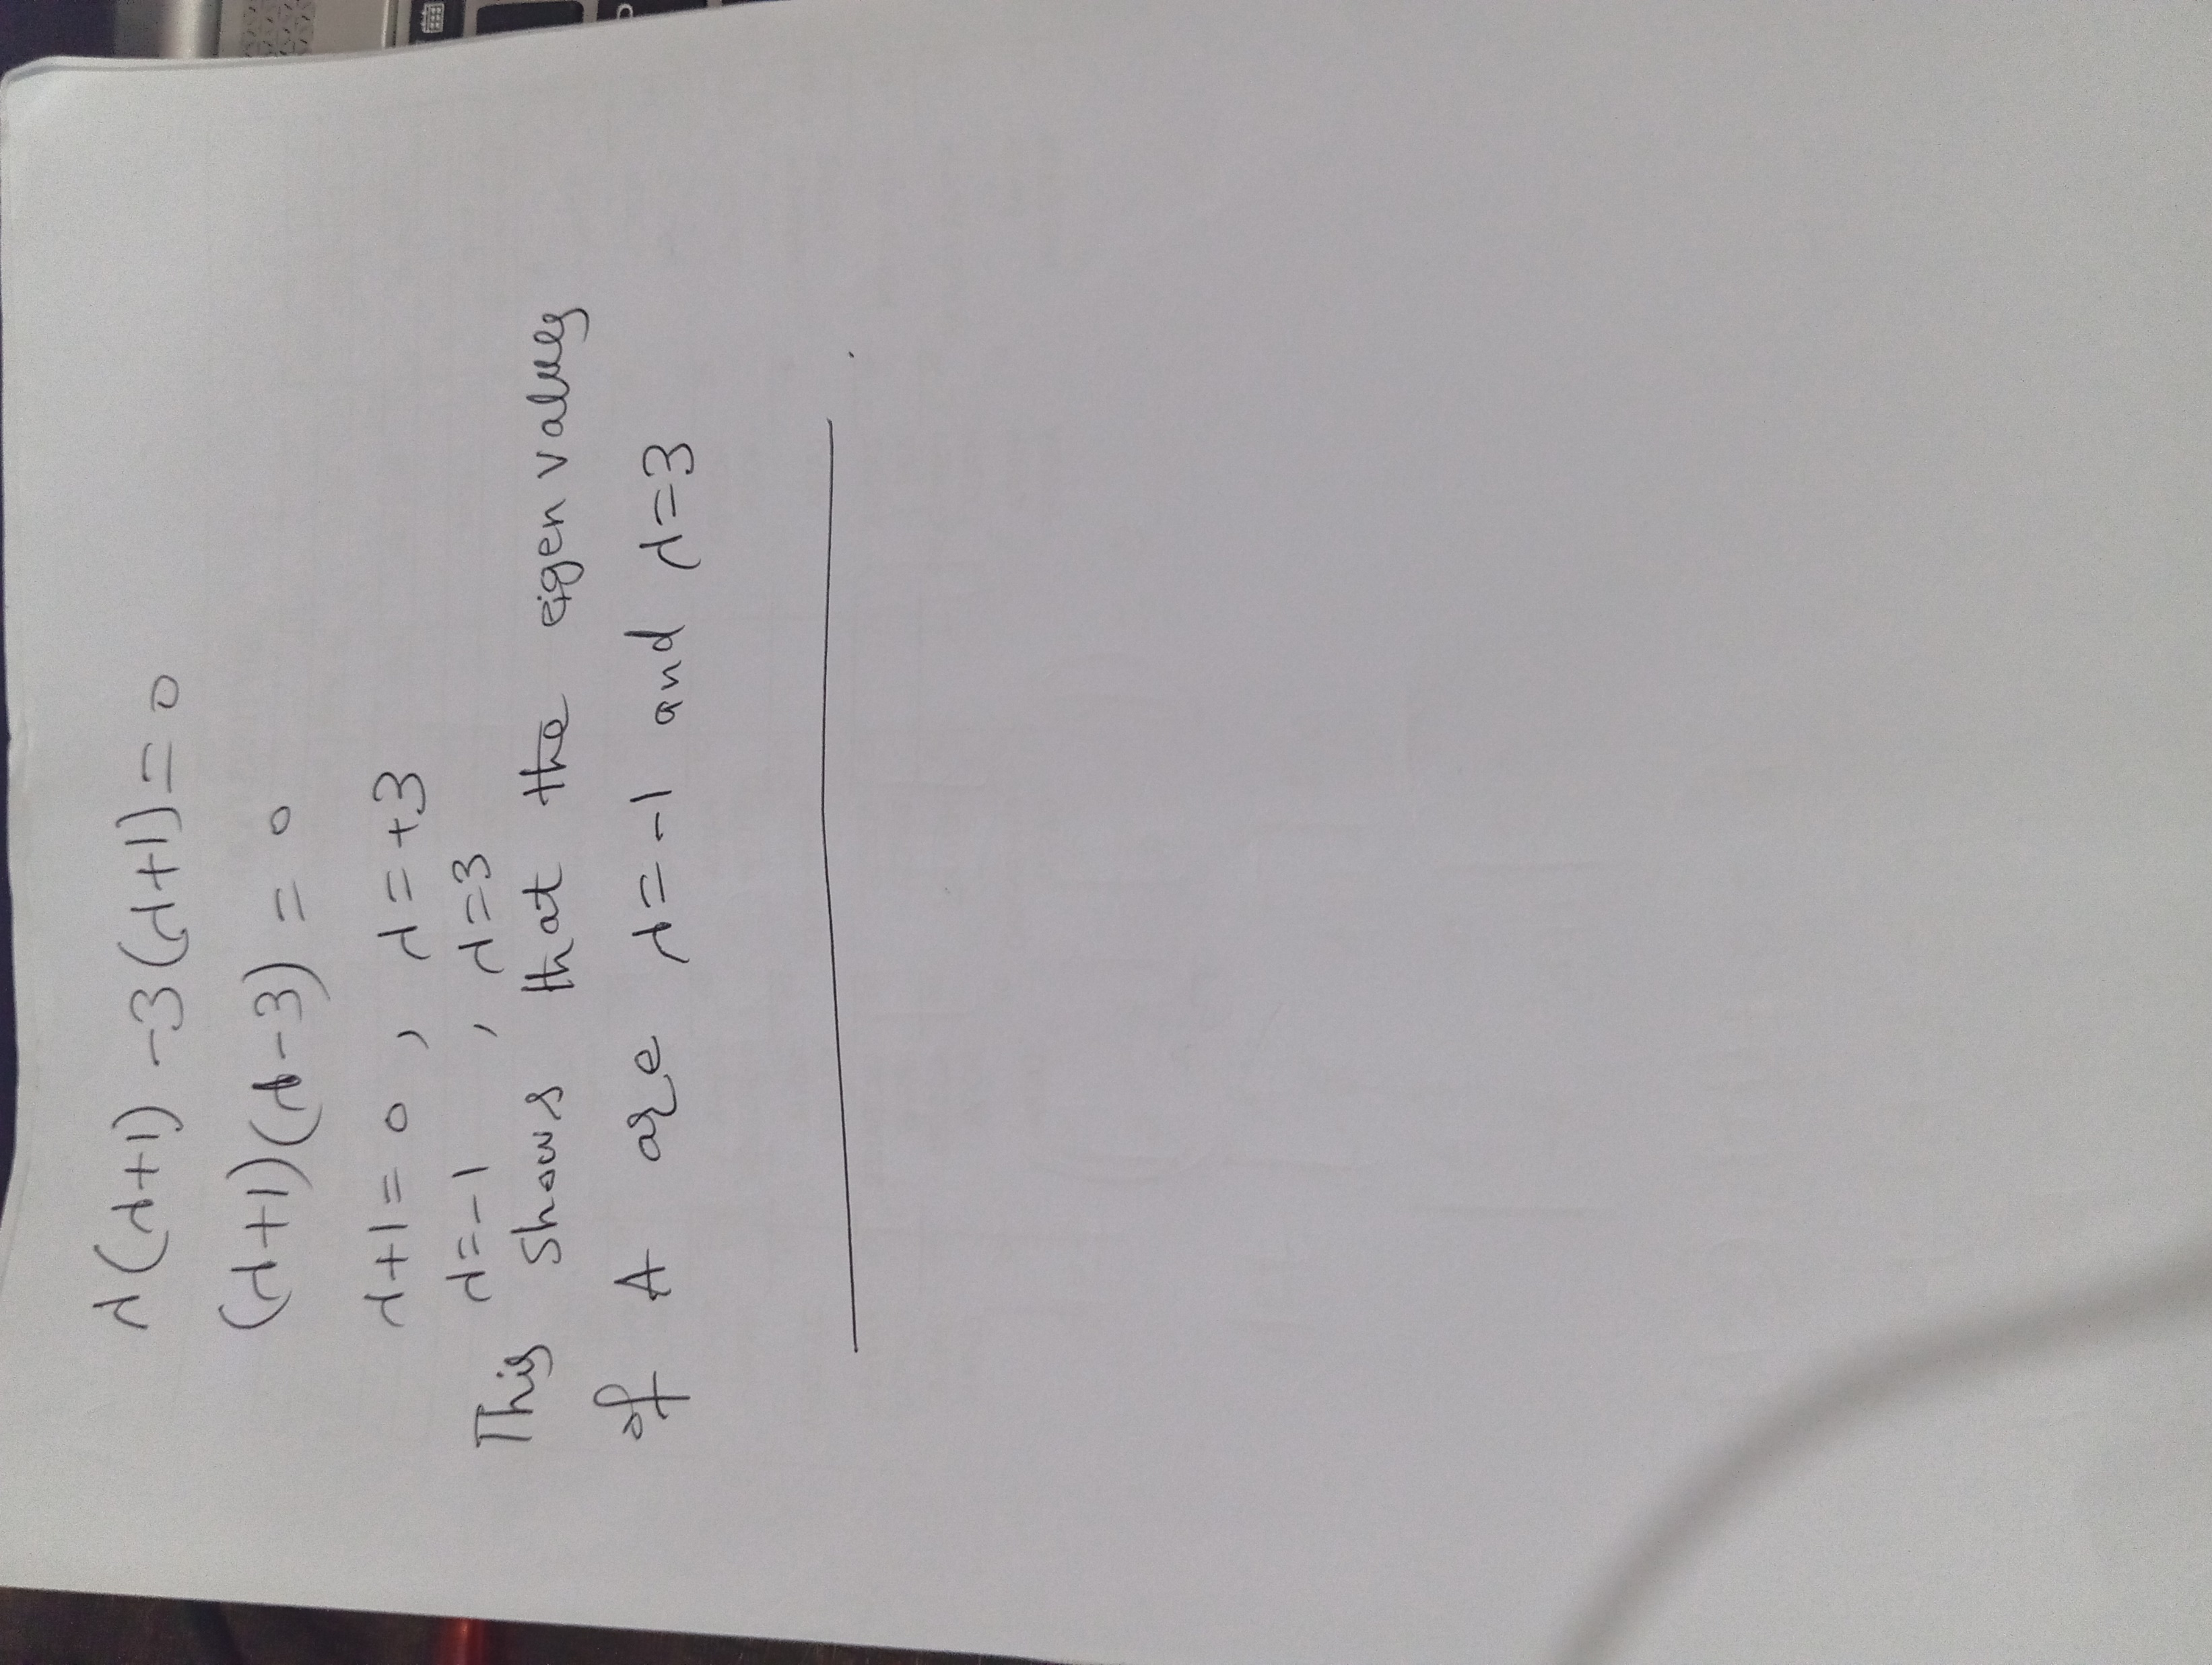 λ(λ+1) -3(λ+1) = 0
(λ+1)(λ-3) = 0
λ+1 = 0 , λ = +3
λ = -1 , λ = 3
This shows that the eigen values
of A are λ = -1 and λ = 3